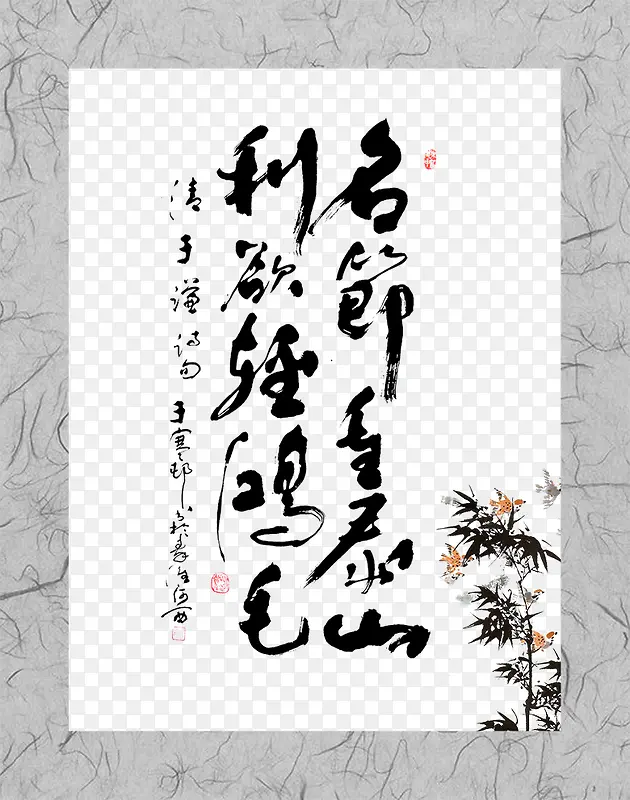 名節重泰山
利欲輕鴻毛
清于謙詩句
于寒邨